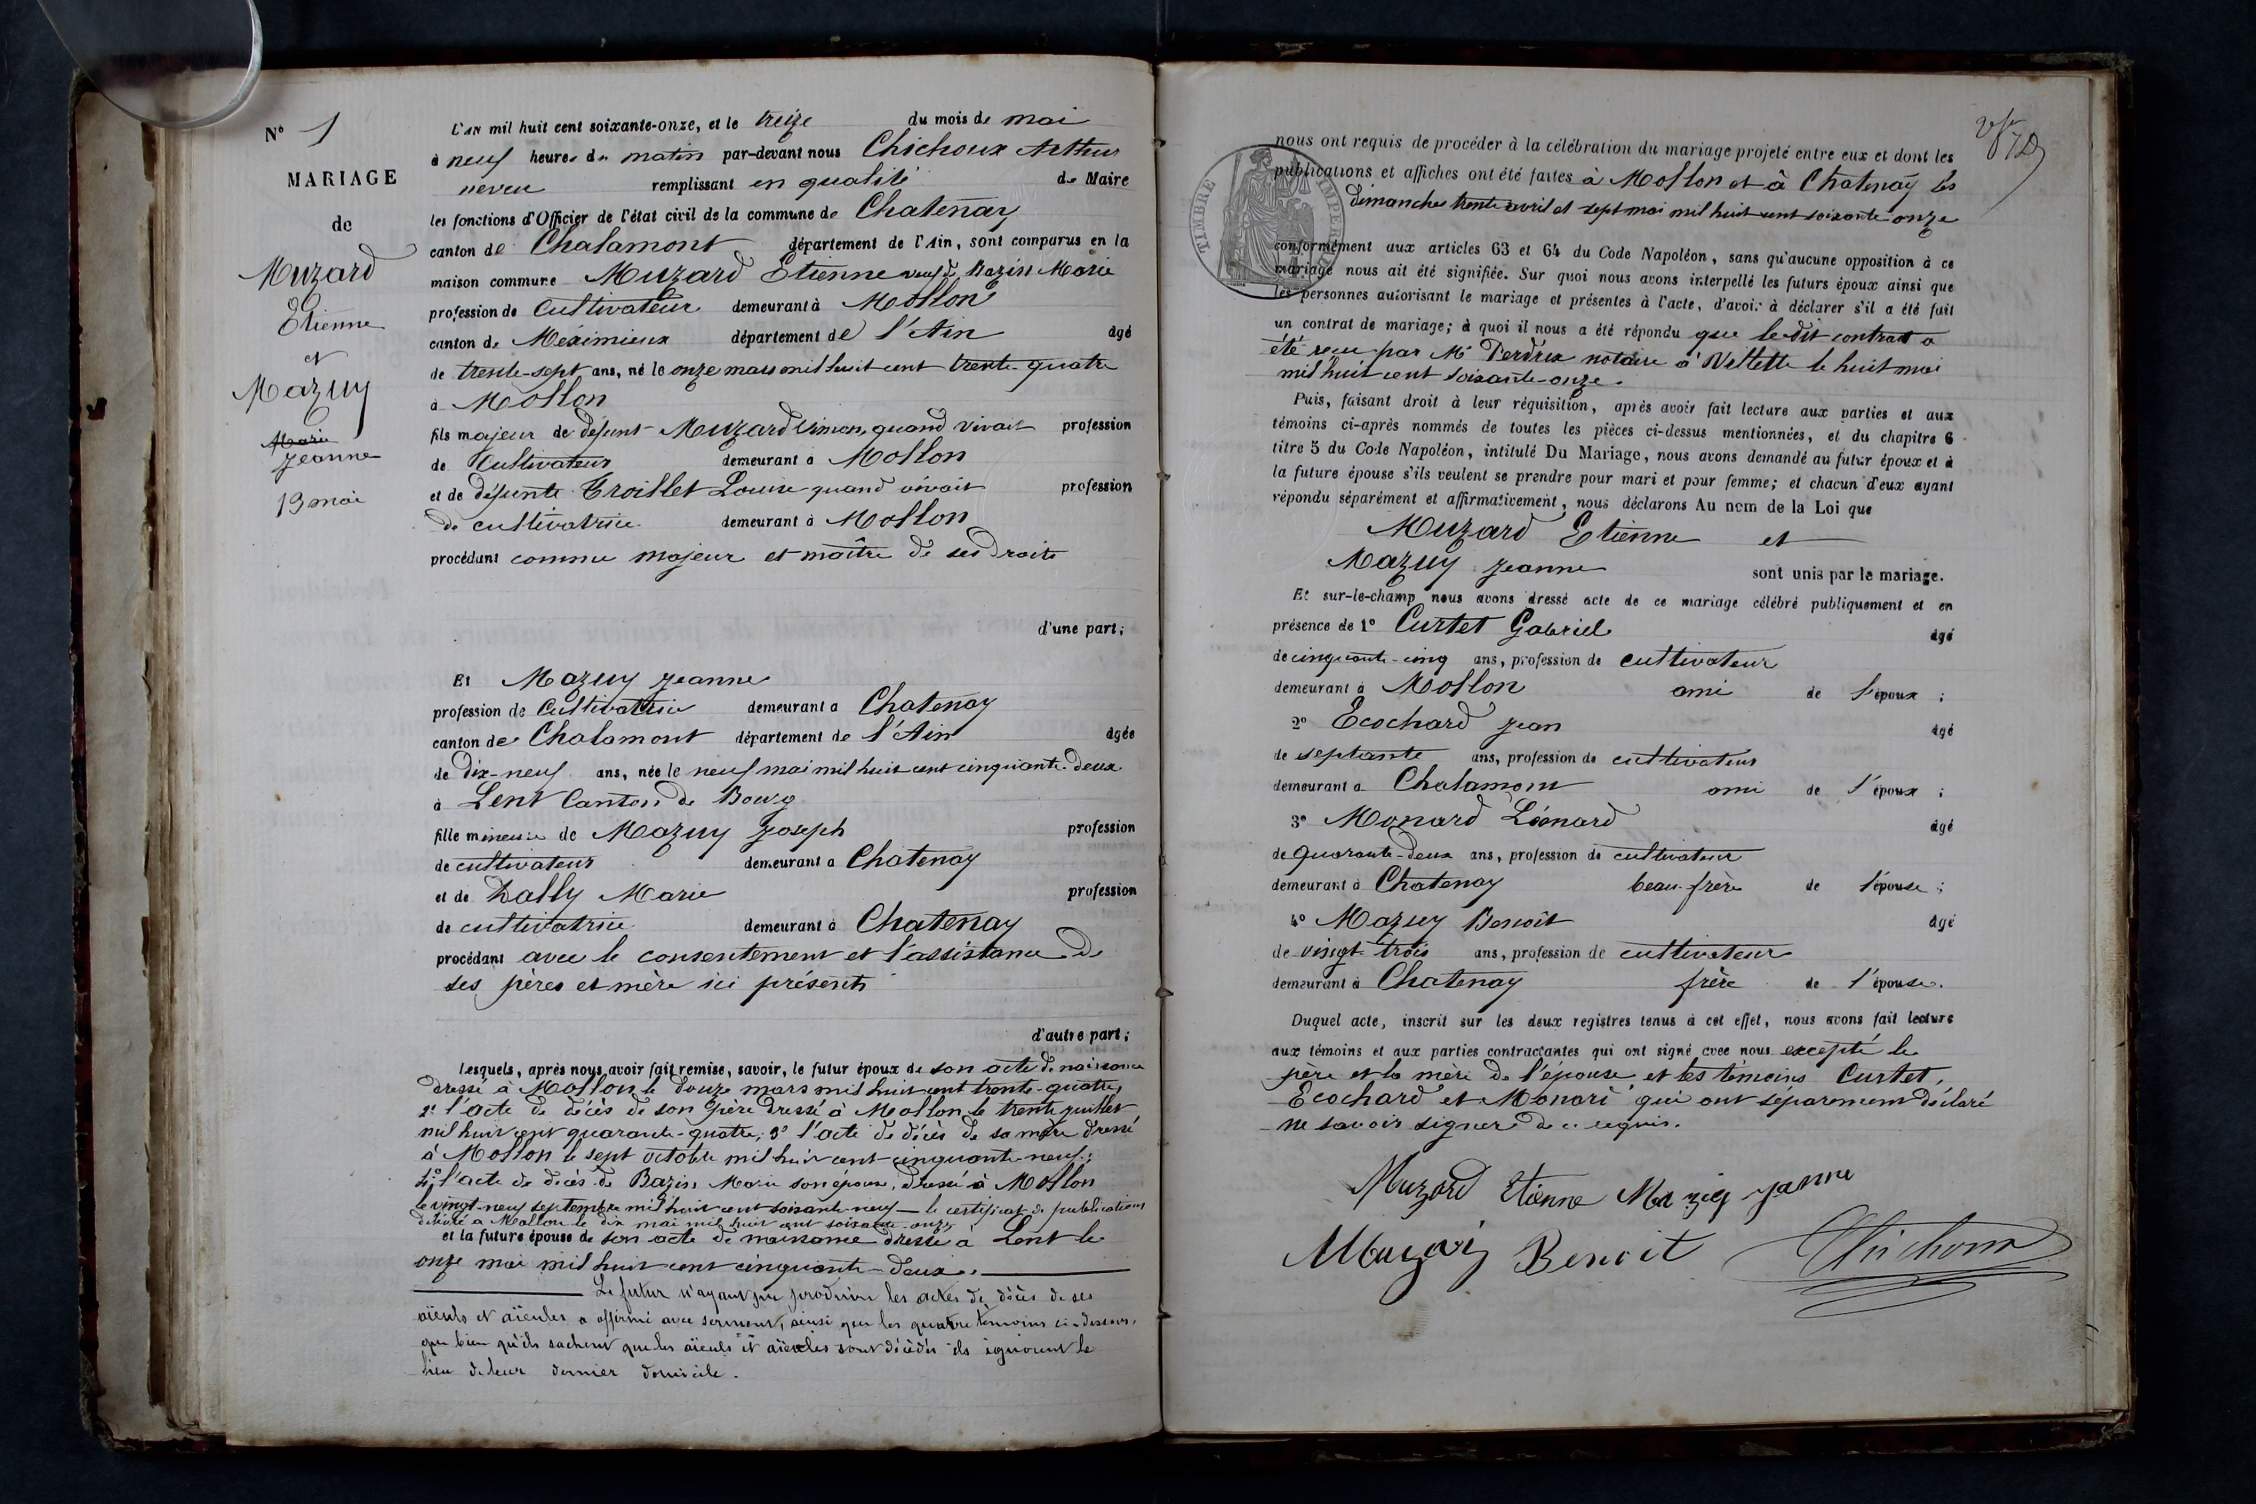 N° 1
MARIAGE
de
Muzard
Etienne
et
Mazuy
Marie
Jeanne
13 mai
L'AN mil huit cent soixante-onze, et le treize du mois de mai
à neuf heures du matin par-devant nous Chichoux Arthur
neveu remplissant en qualité de Maire
les fonctions d'Officier de l'état civil de la commune de Chatenay
canton de Chalamont département de l'Ain, sont comparus en la
maison commune Muzard Etienne veuf de Bazin Marie
profession de Cultivateur demeurant à Mollon
canton de Méximieux département de l'Ain âgé
de trente-sept ans, né le onze mars mil huit cent trente-quatre
à Mollon
fils majeur de défunt Muzard Simon, quand vivait profession
de Cultivateur demeurant à Mollon
et de défunte Troillet Louise quand vivait profession
de cultivatrice demeurant à Mollon
procédant comme majeur et maître de ses droits
d'une part;
Et Mazuy Jeanne
profession de Cultivatrice demeurant à Chatenay
canton de Chalamont département de l'Ain âgée
de dix-neuf ans, née le neuf mai mil huit cent cinquante-deux
à Lent Canton de Bourg
fille mineure de Mazuy Joseph profession
de cultivateur demeurant à Chatenay
et de Lally Marie profession
de cultivatrice demeurant à Chatenay
procédant avec le consentement et l'assistance de
ses pères et mère ici présents
d'autre part;
Lesquels, après nous avoir fait remise, savoir, le futur époux de son acte de naissance
dressé à Mollon le douze mars mil huit cent trente-quatre
2° l'acte de décès de son père dressé à Mollon le trente juillet
mil huit cent quarante-quatre; 3° l'acte de décès de sa mère dressé
à Mollon le sept octobre mil huit cent cinquante-neuf;
4° l'acte de décès de Bazin Marie son épouse, dressé à Mollon
le vingt-neuf septembre mil huit cent soixante-neuf — le certificat de publications
délivré à Mollon le dix mai mil huit cent soixante-onze
et la future épouse de son acte de naissance dressé à Lent le
onze mai mil huit cent cinquante-deux.
Le futur n'ayant pu produire les actes de décès de ses
aïeuls et aïeules a affirmé avec serment, ainsi que les quatre témoins ci-dessous,
que bien qu'ils sachent que les aïeuls et aïeules sont décédés ils ignorent le
lieu de leur dernier domicile.
nous ont requis de procéder à la célébration du mariage projeté entre eux et dont les
publications et affiches ont été faites à Mollon et à Chatenay les
dimanches trente avril et sept mai mil huit cent soixante onze
TIMBRE IMPERIAL
conformément aux articles 63 et 64 du Code Napoléon, sans qu'aucune opposition à ce
mariage nous ait été signifiée. Sur quoi nous avons interpellé les futurs époux ainsi que
les personnes autorisant le mariage et présentes à l'acte, d'avoir à déclarer s'il a été fait
un contrat de mariage; à quoi il nous a été répondu que le dit contrat a
été reçu par Me Perdrix notaire à Villette le huit mai
mil huit cent soixante-onze.
Puis, faisant droit à leur réquisition, après avoir fait lecture aux parties et aux
témoins ci-après nommés de toutes les pièces ci-dessus mentionnées, et du chapitre 6
titre 5 du Code Napoléon, intitulé Du Mariage, nous avons demandé au futur époux et à
la future épouse s'ils veulent se prendre pour mari et pour femme; et chacun d'eux ayant
répondu séparément et affirmativement, nous déclarons Au nom de la Loi que
Muzard Etienne et
Mazuy Jeanne sont unis par le mariage.
Et sur-le-champ nous avons dressé acte de ce mariage célébré publiquement et en
présence de 1° Curtet Gabriel âgé
de cinquante-cinq ans, profession de cultivateur
demeurant à Mollon ami de l'époux;
2° Ecochard Jean âgé
de septante ans, profession de cultivateur
demeurant à Chalamont ami de l'époux;
3° Monard Léonard âgé
de quarante-deux ans, profession de cultivateur
demeurant à Chatenay beau-frère de l'épouse;
4° Mazuy Benoît âgé
de vingt-trois ans, profession de cultivateur
demeurant à Chatenay frère de l'épouse.
Duquel acte, inscrit sur les deux registres tenus à cet effet, nous avons fait lecture
aux témoins et aux parties contractantes qui ont signé avec nous excepté le
père et la mère de l'épouse et les témoins Curtet,
Ecochard et Monard qui ont séparément déclaré
ne savoir signer de ce requis.
Muzard Etienne Mazuy Janne
Mazuy Benoit Chichoux